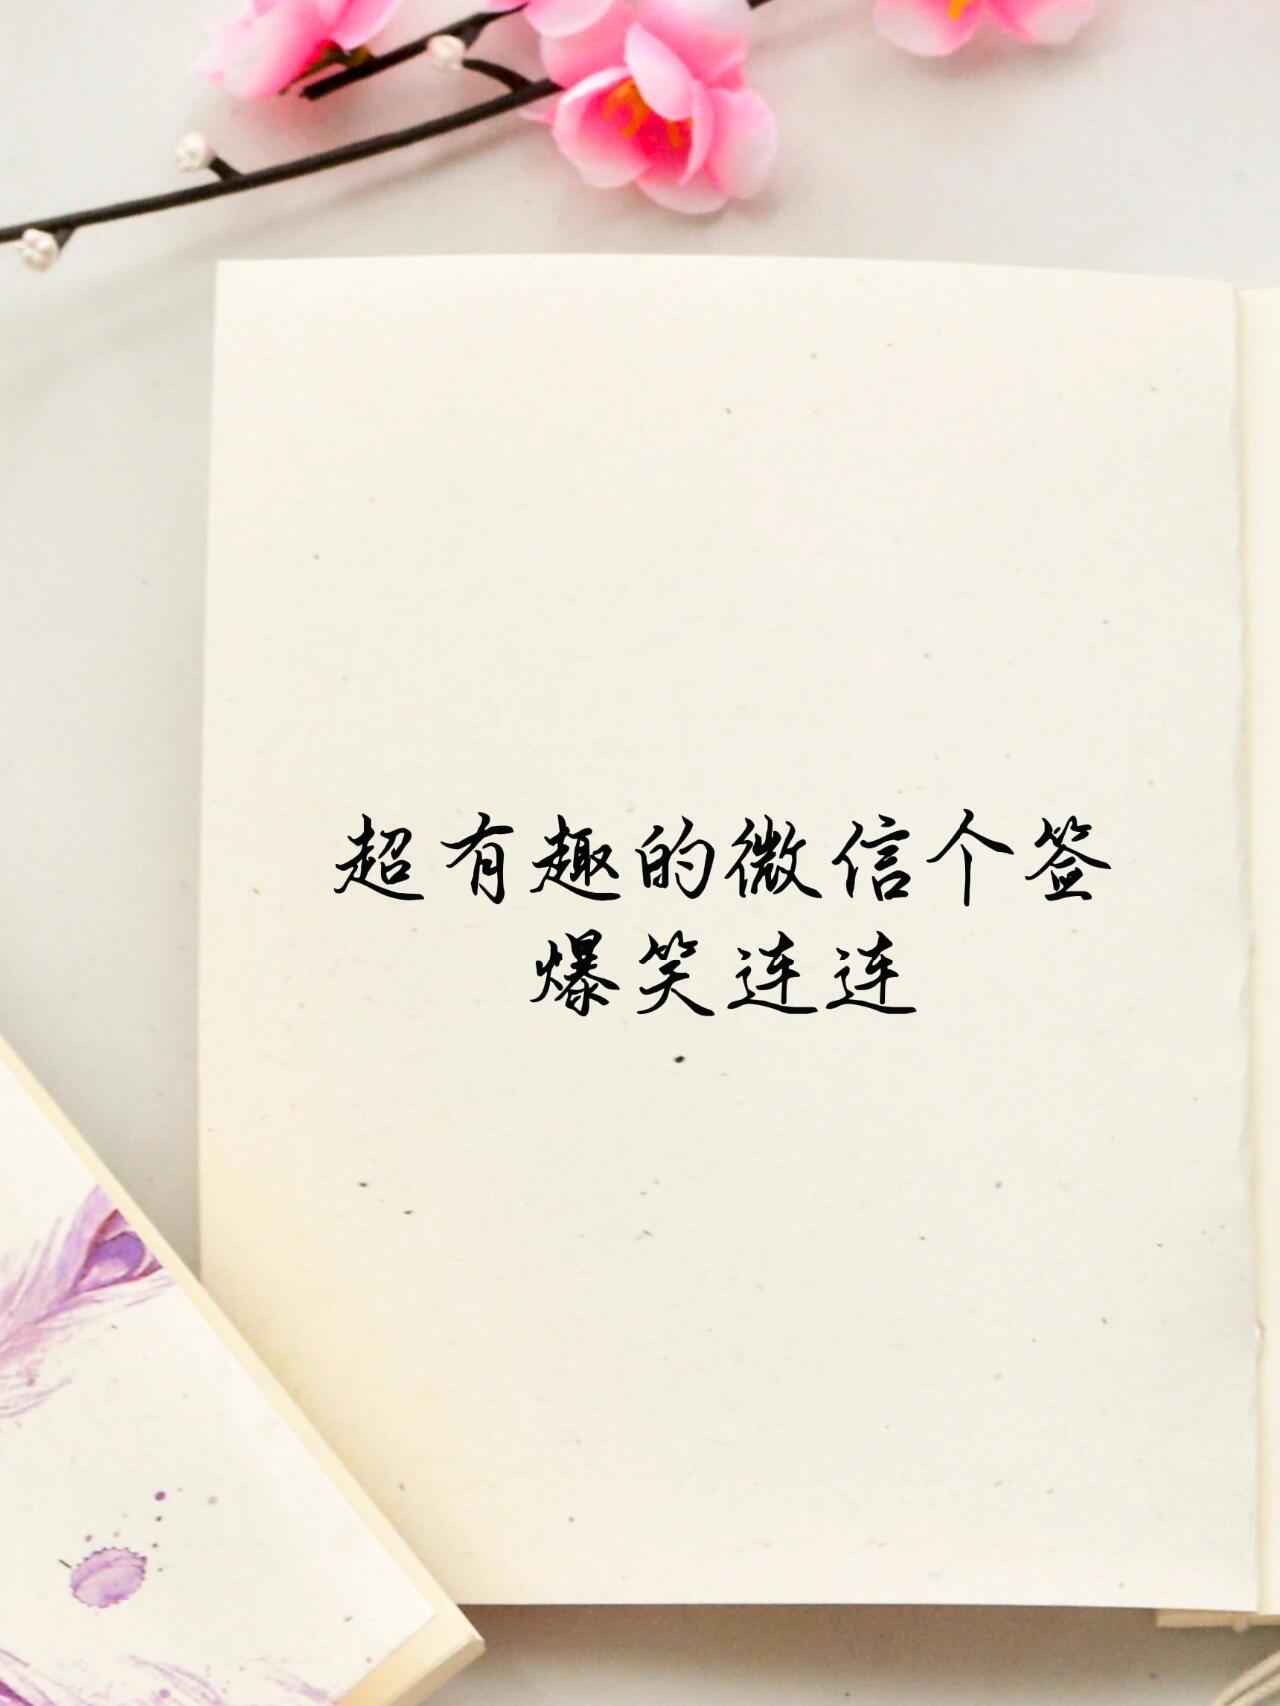 超有趣的微信个签
爆笑连连